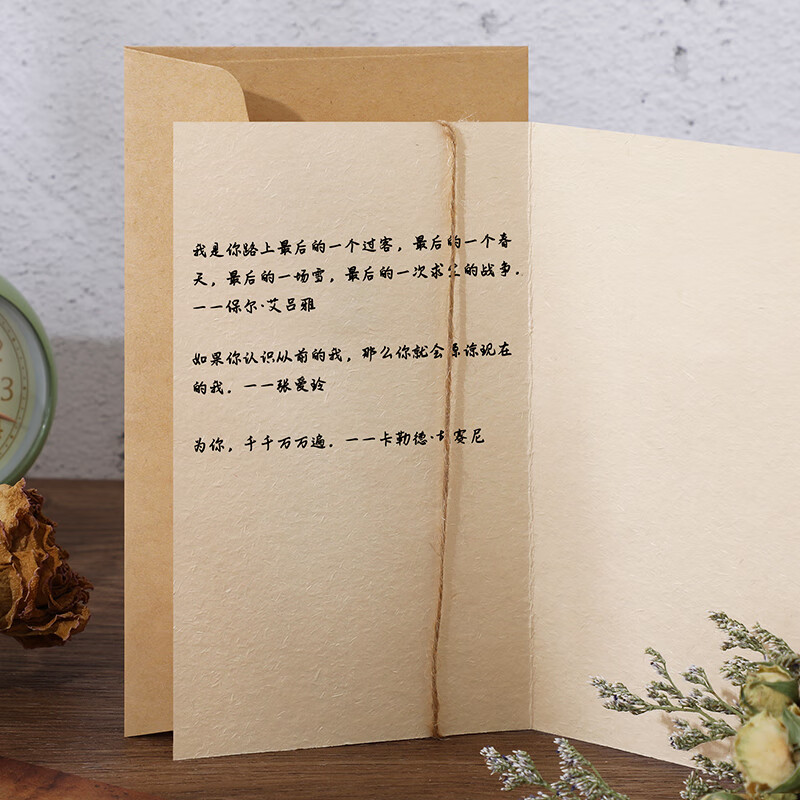 我是你路上最后的一个过客，最后的一个春
天，最后的一场雪，最后的一次求生的战争。
——保尔·艾吕雅
如果你认识从前的我，那么你就会原谅现在
的我。——张爱玲
为你，千千万万遍。——卡勒德·胡赛尼
3